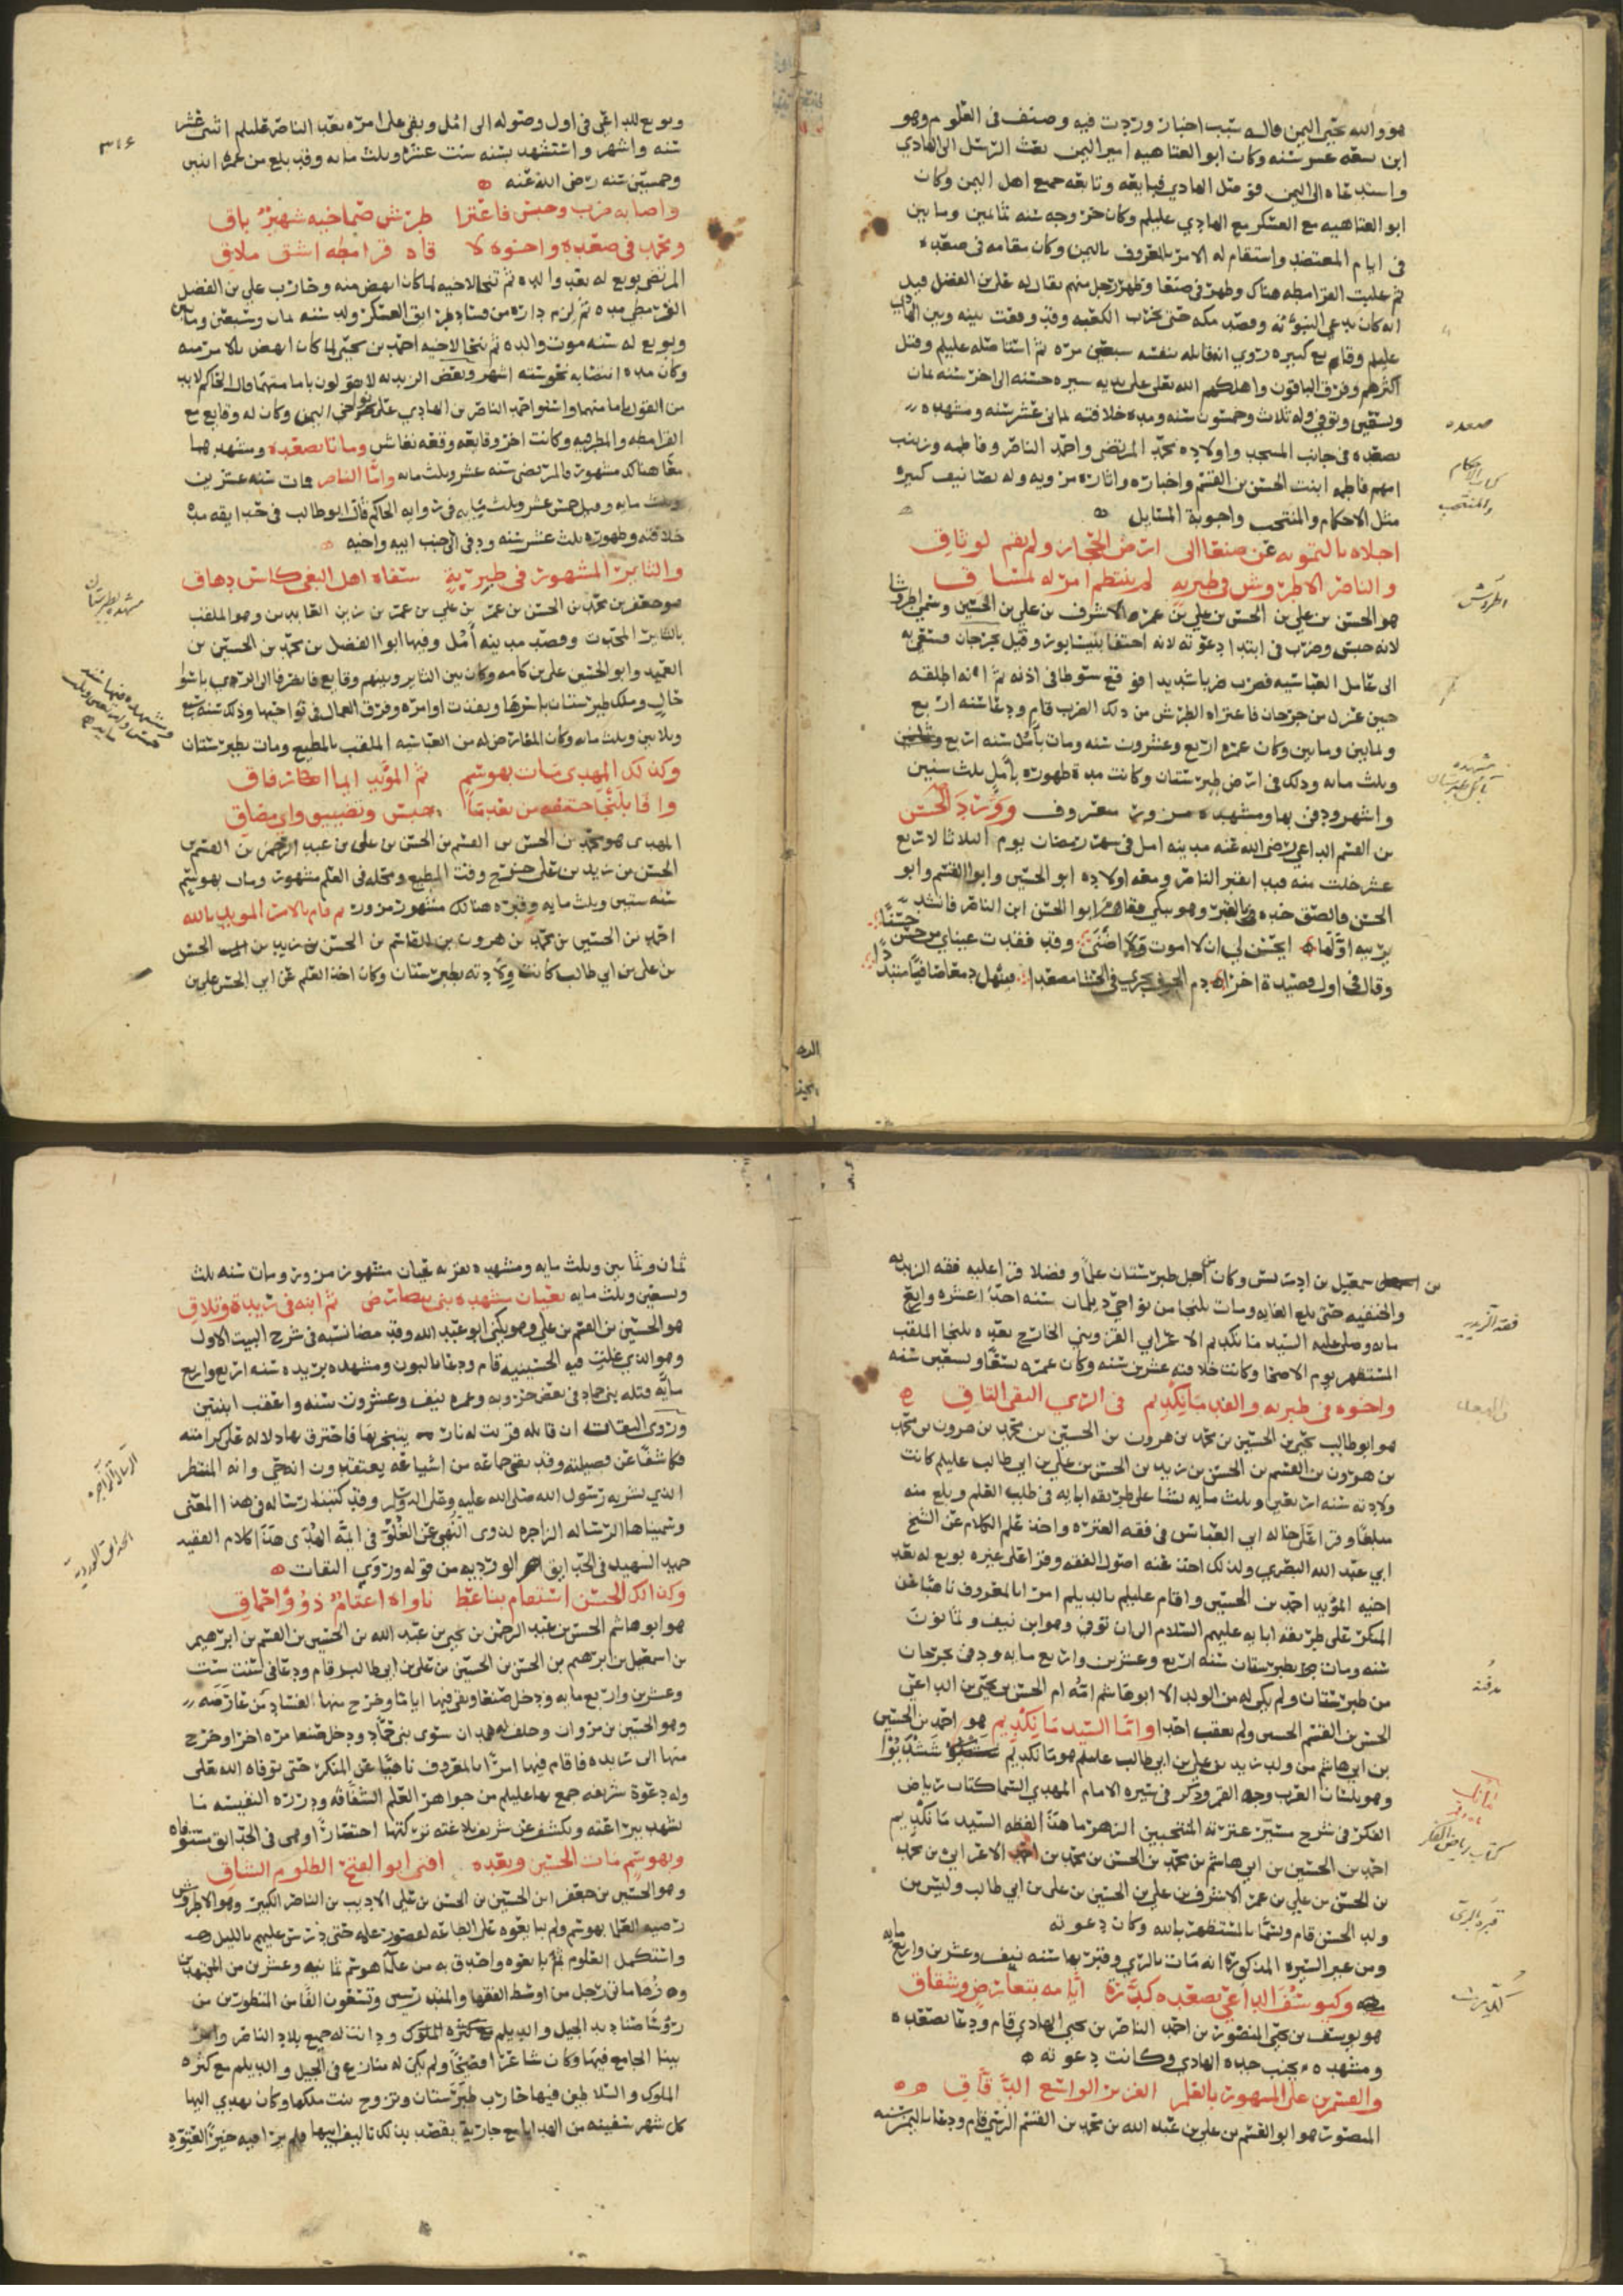 هو والله يحيى اليمن قال وله سبب اخبار وردت فيه وصنف في العلوم وهو
ابن سبعه عشر سنه وكان ابو العتاهيه امير اليمن بعث الرسل الى الهادي
واستدعاه الى اليمن فوصل الهادي فبايعه وتابعه جميع اهل اليمن وكان
ابو العتاهيه مع العسكر مع الهادي عليلم وكان خروجه سنه ثمانين ومايتين
في ايام المعتضد واستقام له الامر بالمعروف باليمن وكان مقامه في صعده
ثم غلبت القرامطه هناك وظهر في صنعا وظهر رجل منهم يقال له علي بن الفضل قيل
انه كان يدعي النبوءه وقصد مكه حتى يخرب الكعبه وقد وقعت بينه وبين الهادي
عليلم وقايع كبيره روي انه قاتله بنفسه سبعين مره ثم استاصله عليلم وقتل
اكثرهم وفرق الباقون واهلكهم الله تعلى على يديه سيره حسنه الى اخر سنه ثمان
وتسعين وتوفي وله ثلاث وخمسون سنه ومده خلافته ثماني عشر سنه ومشهده
بصعده في جانب المسجد واولاده محمد المرتضى واحمد الناصر وفاطمه وزينب
امهم فاطمه ابنت الحسن بن القسم واخباره واثاره مرويه وله تصانيف كبيره
مثل الاحكام والمنتخب واجوبة المسايل
اجلاه بالتمويه عن صنعا الى ارض الحجاز ولم يقم لوثاق
والناصر الاطروش في طبريه لم ينتظم امر له لمشاق
هو الحسن بن علي بن الحسن بن علي بن عمر الاشرف بن علي بن الحسين وسمي اطروشا
لانه حبس وضرب في ابتدا دعوته لانه احتفا بنيسابور وقيل بجرجان فسعي به
الى عامل العباسيه فضرب ضربا شديدا فوقع سوطا في اذنه ثم انه اطلقه
حين عزل من جرجان فاعتراه الطرش من ذلك الضرب قام ودعا سنه اربع
وثمانين ومايتين وكان عمره اربع وعشرون سنه ومات بآمل سنه اربع
وثلث مايه وذلك في ارض طبرستان وكانت مدة ظهوره بآمل ثلث سنين
واشهر ودفن بها ومشهده مزور معروف وورد الحسن
بن القسم الداعي رضي الله عنه مدينه امل في شهر رمضان يوم الثلاثا لاربع
عشر خلت منه فبدا بقبر الناصر ومعه اولاده ابو الحسين وابو القسم وابو
الحسن فالصق خده بالقبر وهو يبكي فقام ابوا الحسن ابن الناصر فانشد
يرثيه اولها ايحسن لي ان لا اموت ولا اضنى وقد فقدت عيناي من حسن حسنا
وقال في اول قصيدة اخرا دم الجوف يجري في الحشا مصعدا فينهل دمعا صافيا متبددا
صعده
كتاب الاحكام
والمنتخب
اطروش
مشهده
بآمل طبرستان
وبويع للداعي في اول وصوله الى امل وبقي على امره بعد الناصر عليلم اثني عشر
سنه واشهر واستشهد بسنه ست عشره وثلث مايه وقد بلغ من عمره اثنين
وخمسين سنه رضي الله عنه
واصابه ضرب وحبس فاعترا طرش صماخيه شهير باق
ومحمد في صعدة واخوه لا قاد قرامطه اشق ملاق
المرتضى بويع له بعد والده ثم تنحا لاخيه لما كان انهض منه وحارب علي بن الفضل
القرمطي مده ثم لزم داره من فساد طرايق العسكر ولد سنه ثمان وسبعين ومايتين
وبويع له سنه موت والده ثم تنحا لاخيه احمد بن يحيى لما كان انهض بالامر منه
وكان مده انتصابه نحو سته اشهر وبعض الزيديه لا يقولون بامامتهما وقال الحاكم لابد
من القول بامامتهما واستولى احمد الناصر بن الهادي على نواحي اليمن وكان له وقايع مع
القرامطه والمطرفيه وكانت اخر وقايعه وقعه نغاش وماتا بصعده ومشهدهما
معا هناك مشهور فالمرتضى سنه عشر وثلث مايه واما الناصر فمات سنه عشرين
وثلث مايه وقيل خمس عشر وثلث مايه في روايه الحاكم قال ابو طالب في حدايقه مده
خلافته وظهوره ثلث عشر سنه ودفن الى جنب ابيه واخيه
والثاير المشهور في طبرية سقاه اهل البغي كاس دهاق
هو جعفر بن محمد بن الحسن بن عمر بن علي بن عمر بن زين العابدين وهو الملقب
بالثاير المحبوب وقصد مدينه آمل وفيها ابو الفضل بن محمد بن الحسين بن
العميد وابو الحسين علي بن كامه وكان بين الثاير وبينهم وقايع فانصرفا الى الري باسوا
حال وملك طبرستان باسرها ونفذت اوامره وفرق العمال في نواحيها وذلك سنه سبع
وثلاثين وثلث مايه وكان المعارض له من العباسيه الملقب بالمطيع ومات بطبرستان
وكذلك المهدى مات بهوسم ثم المؤيد ايما
وافا بلنجا حتفه من بعد ما حبس وتضييق واي مضاق
المهدى هو محمد بن الحسن بن القسم بن الحسن بن علي بن عبد الرحمن بن القسم بن
الحسن بن زيد بن علي خرج وقت المطيع ومحله في العلم مشهور ومات بهوسم
سنه ستين وثلث مايه وقبره هنالك مشهور مزور ثم قام بالامر المويد بالله
احمد بن الحسين بن محمد بن هرون بن القاسم بن الحسن بن زيد بن الحسن
بن علي بن ابي طالب كانت ولادته بطبرستان وكان اخذ العلم عن ابي الحسن علي بن
٣١٤
مشهد بطبرستان
بن اسمعيل بن ادريس وكان من اجل طبرستان علما وفضلا قرا عليه فقه الزيديه
والحنفيه حتى بلغ الغايه ومات بلنجا من نواحي ديلمان سنه احدا عشره واربع
مايه وصلى عليه السيد مانكديم الاعرابي القزويني الخارج بعده بلنجا الملقب
المستظهر يوم الاضحا وكانت خلافته عشرين سنه وكان عمره تسعا وسبعين سنه
واخوه في طبريه والفد مانكديم في الري النقي التاق
هو ابو طالب يحيى بن الحسين بن محمد بن هرون بن الحسين بن محمد بن هرون بن محمد
بن هرون بن القسم بن الحسن بن زيد بن الحسن بن علي بن ابي طالب عليلم كانت
ولادته سنه اربعين وثلث مايه نشا على طريقه ابايه في طلب العلم وبلغ منه
مبلغا وقرا على خاله ابي العباس في فقه العتره واخذ علم الكلام عن الشيخ
ابي عبد الله البصري وكذلك اخذ عنه اصول الفقه وقرا على غيره بويع له بعد
اخيه المؤيد احمد بن الحسين واقام عليلم بالديلم امرا بالمعروف ناهيا عن
المنكر على طريقه ابايه عليهم السلام الى ان توفي وهو ابن نيف وثمانون
سنه ومات بطبرستان سنه اربع وعشرين واربع مايه ودفن بجرجان
من طبرستان ولم يكن له من الولد الا ابو هاشم امه ام الحسن بن يحيى بن الداعي
الحسن بن القسم الحسني ولم يعقب احدا واما السيد مانكديم هو احمد بن الحسين
بن ابي هاشم من ولد زيد بن علي بن ابي طالب عليلم هو مانكديم ششديو
وهو بلسان العرب وجه القمر وذكر في سيره الامام المهدي المسما كتاب رياض
الفكر في شرح سير عترته المنتجبين الزهر ما هذا لفظه السيد مانكديم
احمد بن الحسين بن ابي هاشم بن محمد بن الحسن بن محمد بن احمد الاعرابي بن محمد
بن الحسن بن علي بن عمر الاشرف بن علي بن الحسين بن علي بن ابي طالب وليس من
ولد الحسن قام وتسما بالمستظهر بالله وكان دعوته
ومن غير السيره المذكورة انه مات بالري وقبر بها سنه نيف وعشرين واربع مايه
وكيوسف الداعي بصعده كدرة ايامه بتعارض وشقاق
هو يوسف بن يحيى المنصور بن احمد الناصر بن يحيى الهادي قام ودعا بصعده
ومشهده بجنب جده الهادي وكانت دعوته
والقسم بن علي المشهور بالعلم الغزير الواسع الدفاق
المنصور هو ابو القسم بن علي بن عبد الله بن محمد بن القسم الرسي قام ودعا باليمن سنه
فقه الزيديه
مدفنه
كتاب رياض الفكر
قبره بالري
ثمان وثمانين وثلث مايه ومشهده بعزيه عيان مشهور مزور ومات سنه ثلث
وتسعين وثلث مايه بعيان مشهده ثم ابنه في ريدة وتلاق
هو الحسين بن القسم بن علي وهو يكنى ابو عبد الله وقد مضا نسبه في شرح البيت الاول
وهو الذي غلت فيه الحسينيه قام ودعا بالبون ومشهده بريده سنه اربع واربع
مايه قتله بني حماد في بعض حروبه وعمره نيف وعشرون سنه واعقب ابنتين
وروى الثقات ان قاتله قربت له نار يتبخر بها فاحترق بها دلاله على كرامته
كاشفا عن فضيلته وقد بقي جماعه من اشياعه يعتقدون انه حي وانه المنتظر
الذي بشر به رسول الله صلى الله عليه وعلى اله وسلم وقد كتبنا رساله في هذا المعنى
وسميناها الرساله الزاجره لذوي النهي عن الغلو في ايمه الهدى هذا كلام الفقيد
حميد الشهيد في الحدايق الورديه من قوله وروي الثقات
وكذاك الحسن استقام بناعط ناواه اعتام ذوو احماق
هو ابو هاشم الحسن بن عبد الرحمن بن يحيى بن عبد الله بن الحسين بن القسم بن ابرهيم
بن اسمعيل بن ابرهيم بن الحسن بن الحسين بن علي بن ابي طالب قام ودعا في سنت ست
وعشرين واربع مايه ودخل صنعا وبقي فيها اياما وخرج منها لفساد من عارضه
وهو الحسين بن مروان وحلف له همدان سوى بني حماد ودخل صنعا مره اخرا وخرج
منها الى ريده فاقام فيها امرا بالمعروف ناهيا عن المنكر حتى توفاه الله تعلى
وله دعوة شريفه جمع بها عليلم من جواهر العلم الشفافه ودرره النفيسه ما
يشهد ببراعته ويكشف عن شريف بلاغته تركتها احتصارا وهي في الحدايق مستوفاه
وبهوسم مات الحسين وبعده افنى ابو الفتح الظلوم الشاق
وهو الحسين بن جعفر ابن الحسين بن الحسن بن علي الاديب بن الناصر الكبير وهو الاطروش
رضيه العلما بهوسم ولم يبايعوه على الطاعه لقصور علمه حتى درس عليهم بالليل
واستكمل العلوم ثم بايعوه واحدق به من علما هوسم ثمانيه وعشرين من المجتهدين
بينا الجامع فيها وكان شاعرا فصيحا ولم يكن له منازع في الجيل والديلم مع كثره
الملوك والسلاطين فيها حارب طبرستان وتزوج بنت ملكها وكان يهدي اليها
كل شهر سفينه من الهدايا مع جارية يقصد بذلك تاليف ابيها
الرساله الزاجره
الحدايق الورديه